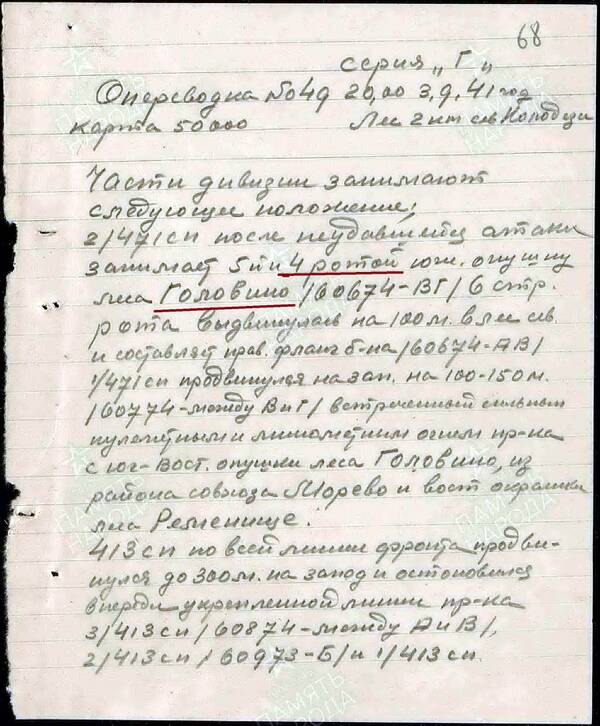 68
серия „Г„
Оперсводка №049 20,00 3,9,41 год
карта 50000 Лес 2 км сев Колодези
Части дивизии занимают
следующее положение:
2/471 сп после неудавшейся атаки
занимает 5й и 4 ротой юж. опушку
леса Головино /60674-ВГ/ 6 стр.
рота выдвинулась на 100 м. в лес св
и составляет прав. фланг б-на /60674-АВ/
1/471 сп продвинулся на зап. на 100-150 м.
/60774-между В и Г/ встреченный сильным
пулеметным и минометным огнем пр-ка
с юг-вост. опушки леса Головино, из
района совхоза Морево и вост окраины
леса Ременище.
413 сп по всей линии фронта продви-
нулся до 300 м. на запод и остоновился
впереди укрепленной линии пр-ка
3/413 сп /60874-между А и В/,
2/413 сп /60973-Б/ и 1/413 сп.
ПАМЯТЬ НАРОДА